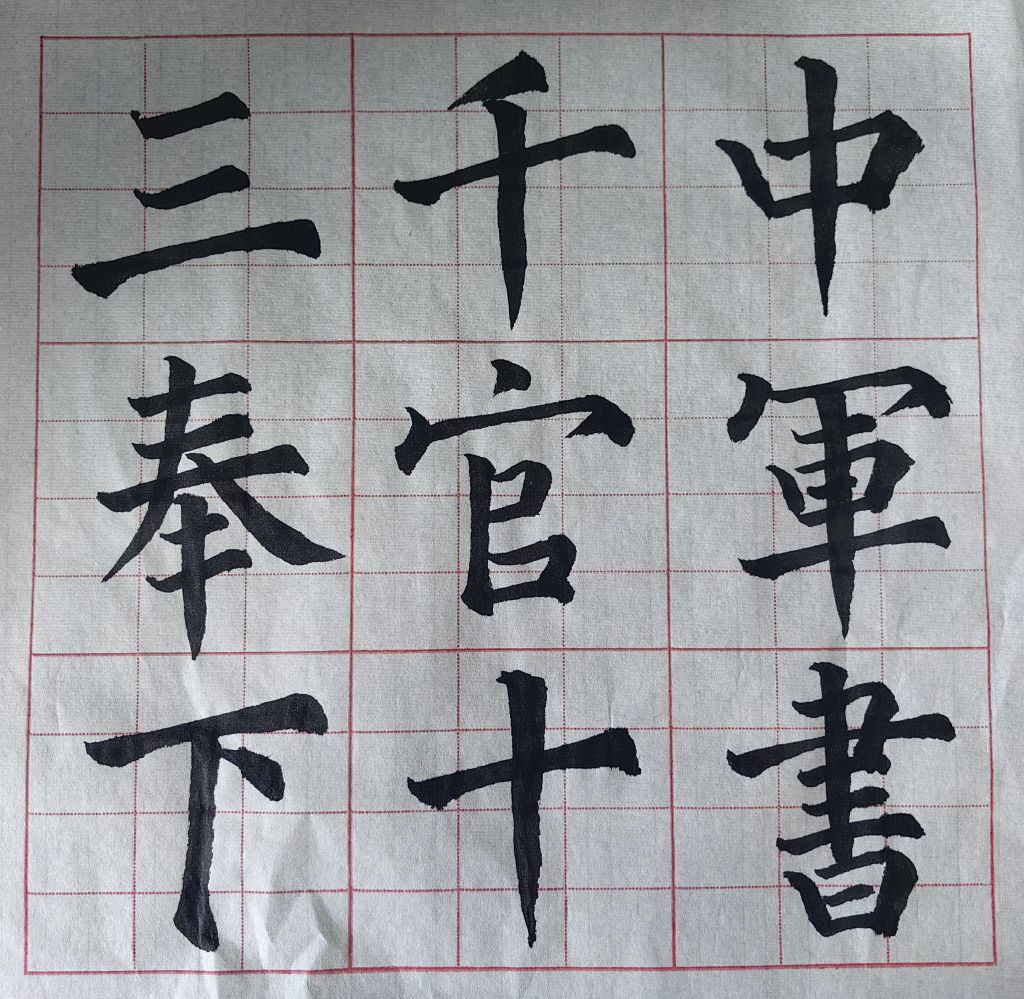 中軍書
千官十
三奉下